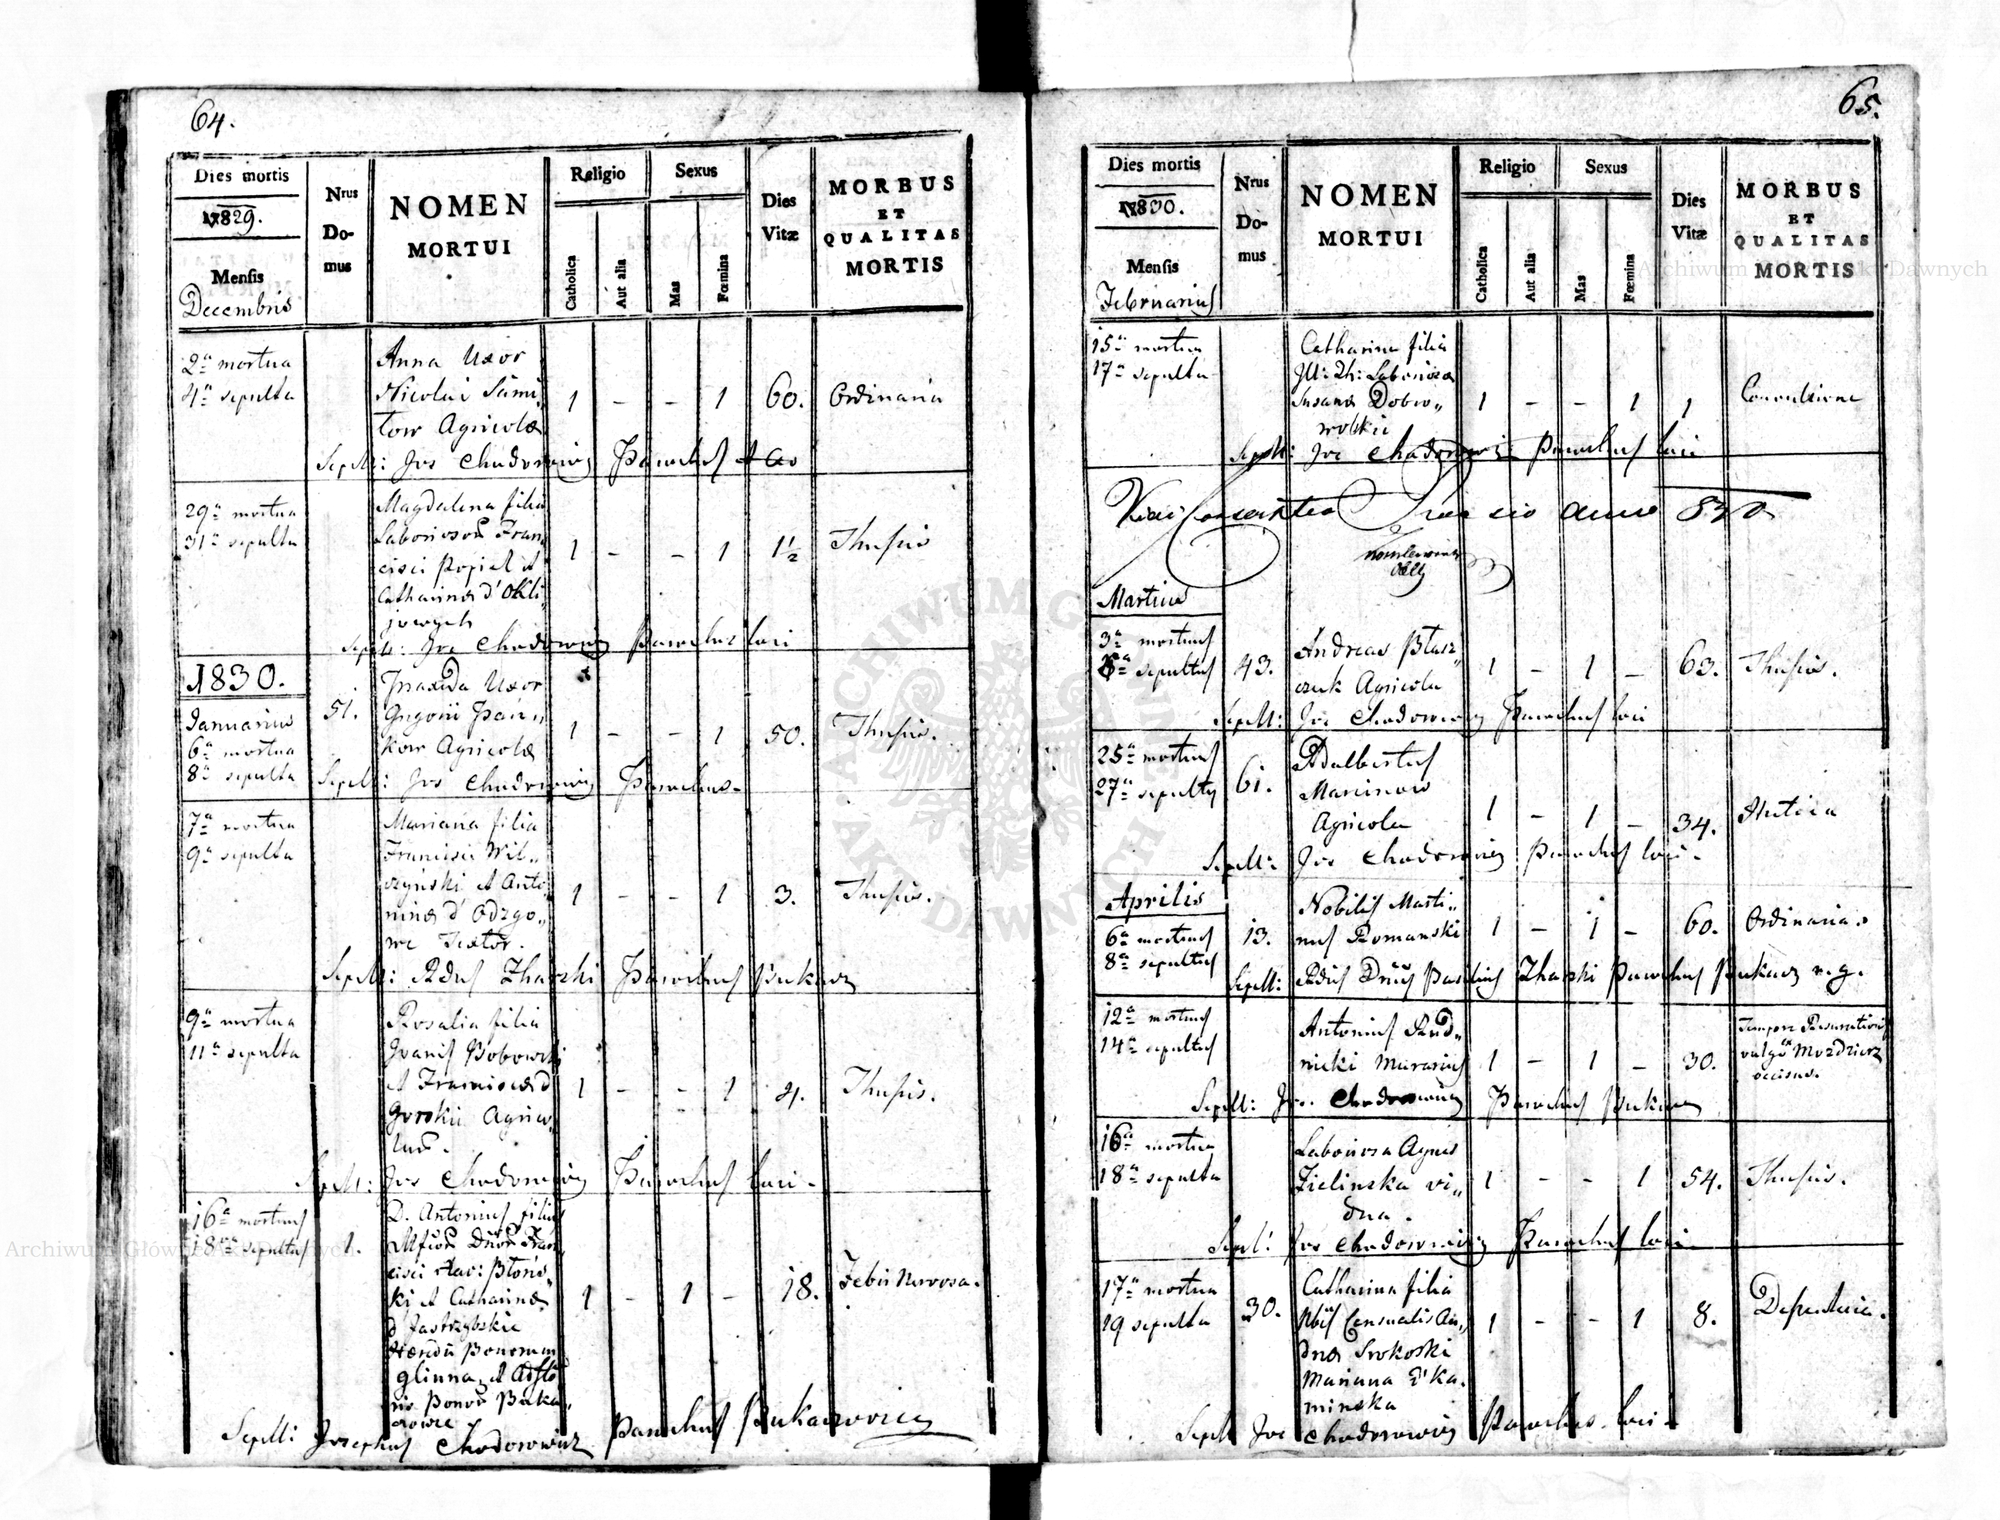 64.
Dies mortis
1829.
Mensis
Decembris
Nrus
Do-
mus
NOMEN
MORTUI
Religio
Catholica
Aut alia
Sexus
Mas
Fœmina
Dies
Vitæ
MORBUS
ET
QUALITAS
MORTIS
2a mortua
4a sepulta
Anna Uxor
Nicolai
Agricolæ
1 - - 1 60. Ordinaria
Sepeli: Jos Chodorowicz Parochus
29a mortua
31a sepulta
Magdalena filia
Laboriosor Fran
cisci Popiel et
Catharinæ d'
1 - - 1 1½ Thusis
Sepeli: Jos Chodorowicz Parochus loci
1830.
Januarius
6a mortua
8a sepulta
51.
Uxor
Agricolæ
1 - - 1 50. Thusis.
Sepeli: Jos Chodorowicz Parochus.
7a mortua
9a sepulta
Mariana filia
Francisci Wil„
czyński et Anto
ninæ d' Odzgo„
we Textor.
1 - - 1 3. Thusis.
Sepeli: Zharski Parochus Bukacz
9a mortua
11a sepulta
Rosalia filia
Joanis Bobowski
et Franciscæ d
Gorskii Agrico„
1 - - 1 4. Thusis.
Sepeli: Jos Chodorowicz Parochus loci -
16a mortuus
18a sepultus
1.
D. Antonius filius
cisci Błons„
ki et Catharinæ
d Jastrzębskie
Hæredū Bonorum
Glinna, et
Bonor Buka„
cowce
1 - 1 - 18. Febis Nervosa.
Sepeli: Josephus Chodorowicz Parochus Bukaczovicen
65.
Dies mortis
1830.
Mensis
Februarius
Nrus
Do-
mus
NOMEN
MORTUI
Religio
Catholica
Aut alia
Sexus
Mas
Fœmina
Dies
Vitæ
MORBUS
ET
QUALITAS
MORTIS
15a mortua
17a sepulta
Catharina filia
Susanæ Dobro„
wolskie
1 - - 1 1 Convulsione
Sepeli: Jos Chodorowicz Parochus loci
anno 830
Martius
3a mortuus
sepultus
43.
Andreas Błasz„
czuk Agricola
1 - 1 - 63. Thusis.
Sepeli: Jos Chodorowicz Parochus loci
25a mortuus
27a sepultus
61.
Adalbertus
Marcinow
Agricola
1 - 1 - 34.
Sepeli: Jos Chodorowicz Parochus loci -
Aprilis
6a mortuus
8a sepultus
13.
Nobilis Marti„
nus Romanski
1 - 1 - 60. Ordinaria.
Sepeli: Basilius Zharski Parochus Bukacz r. g.
12a mortuus
14a sepultus
Antonius Rud„
nicki Murarius
1 - 1 - 30.
Tempore Resurrectionis
vulgo ex Mozdzierz
occisus.
Sepeli: Jos. Chodorowicz Parochus Bukacz
16a mortua
18a sepulta
Laboriosa Agnes
Zielinska vi„
dua.
1 - - 1 54. Thusis.
Sepel: Jos Chodorowicz Parochus loci -
17a mortua
19 sepulta
30.
Catharina filia
Nblis Censualis An„
dreæ Srokoski
Mariana d' Ka.
minska
1 - - 1 8.
Sepel Jos Chodorowicz Parochus loci -
Archiwum Główne Akt Dawnych
Archiwum Główne Akt Dawnych
ARCHIWUM GŁÓWNE
AKT DAWNYCH